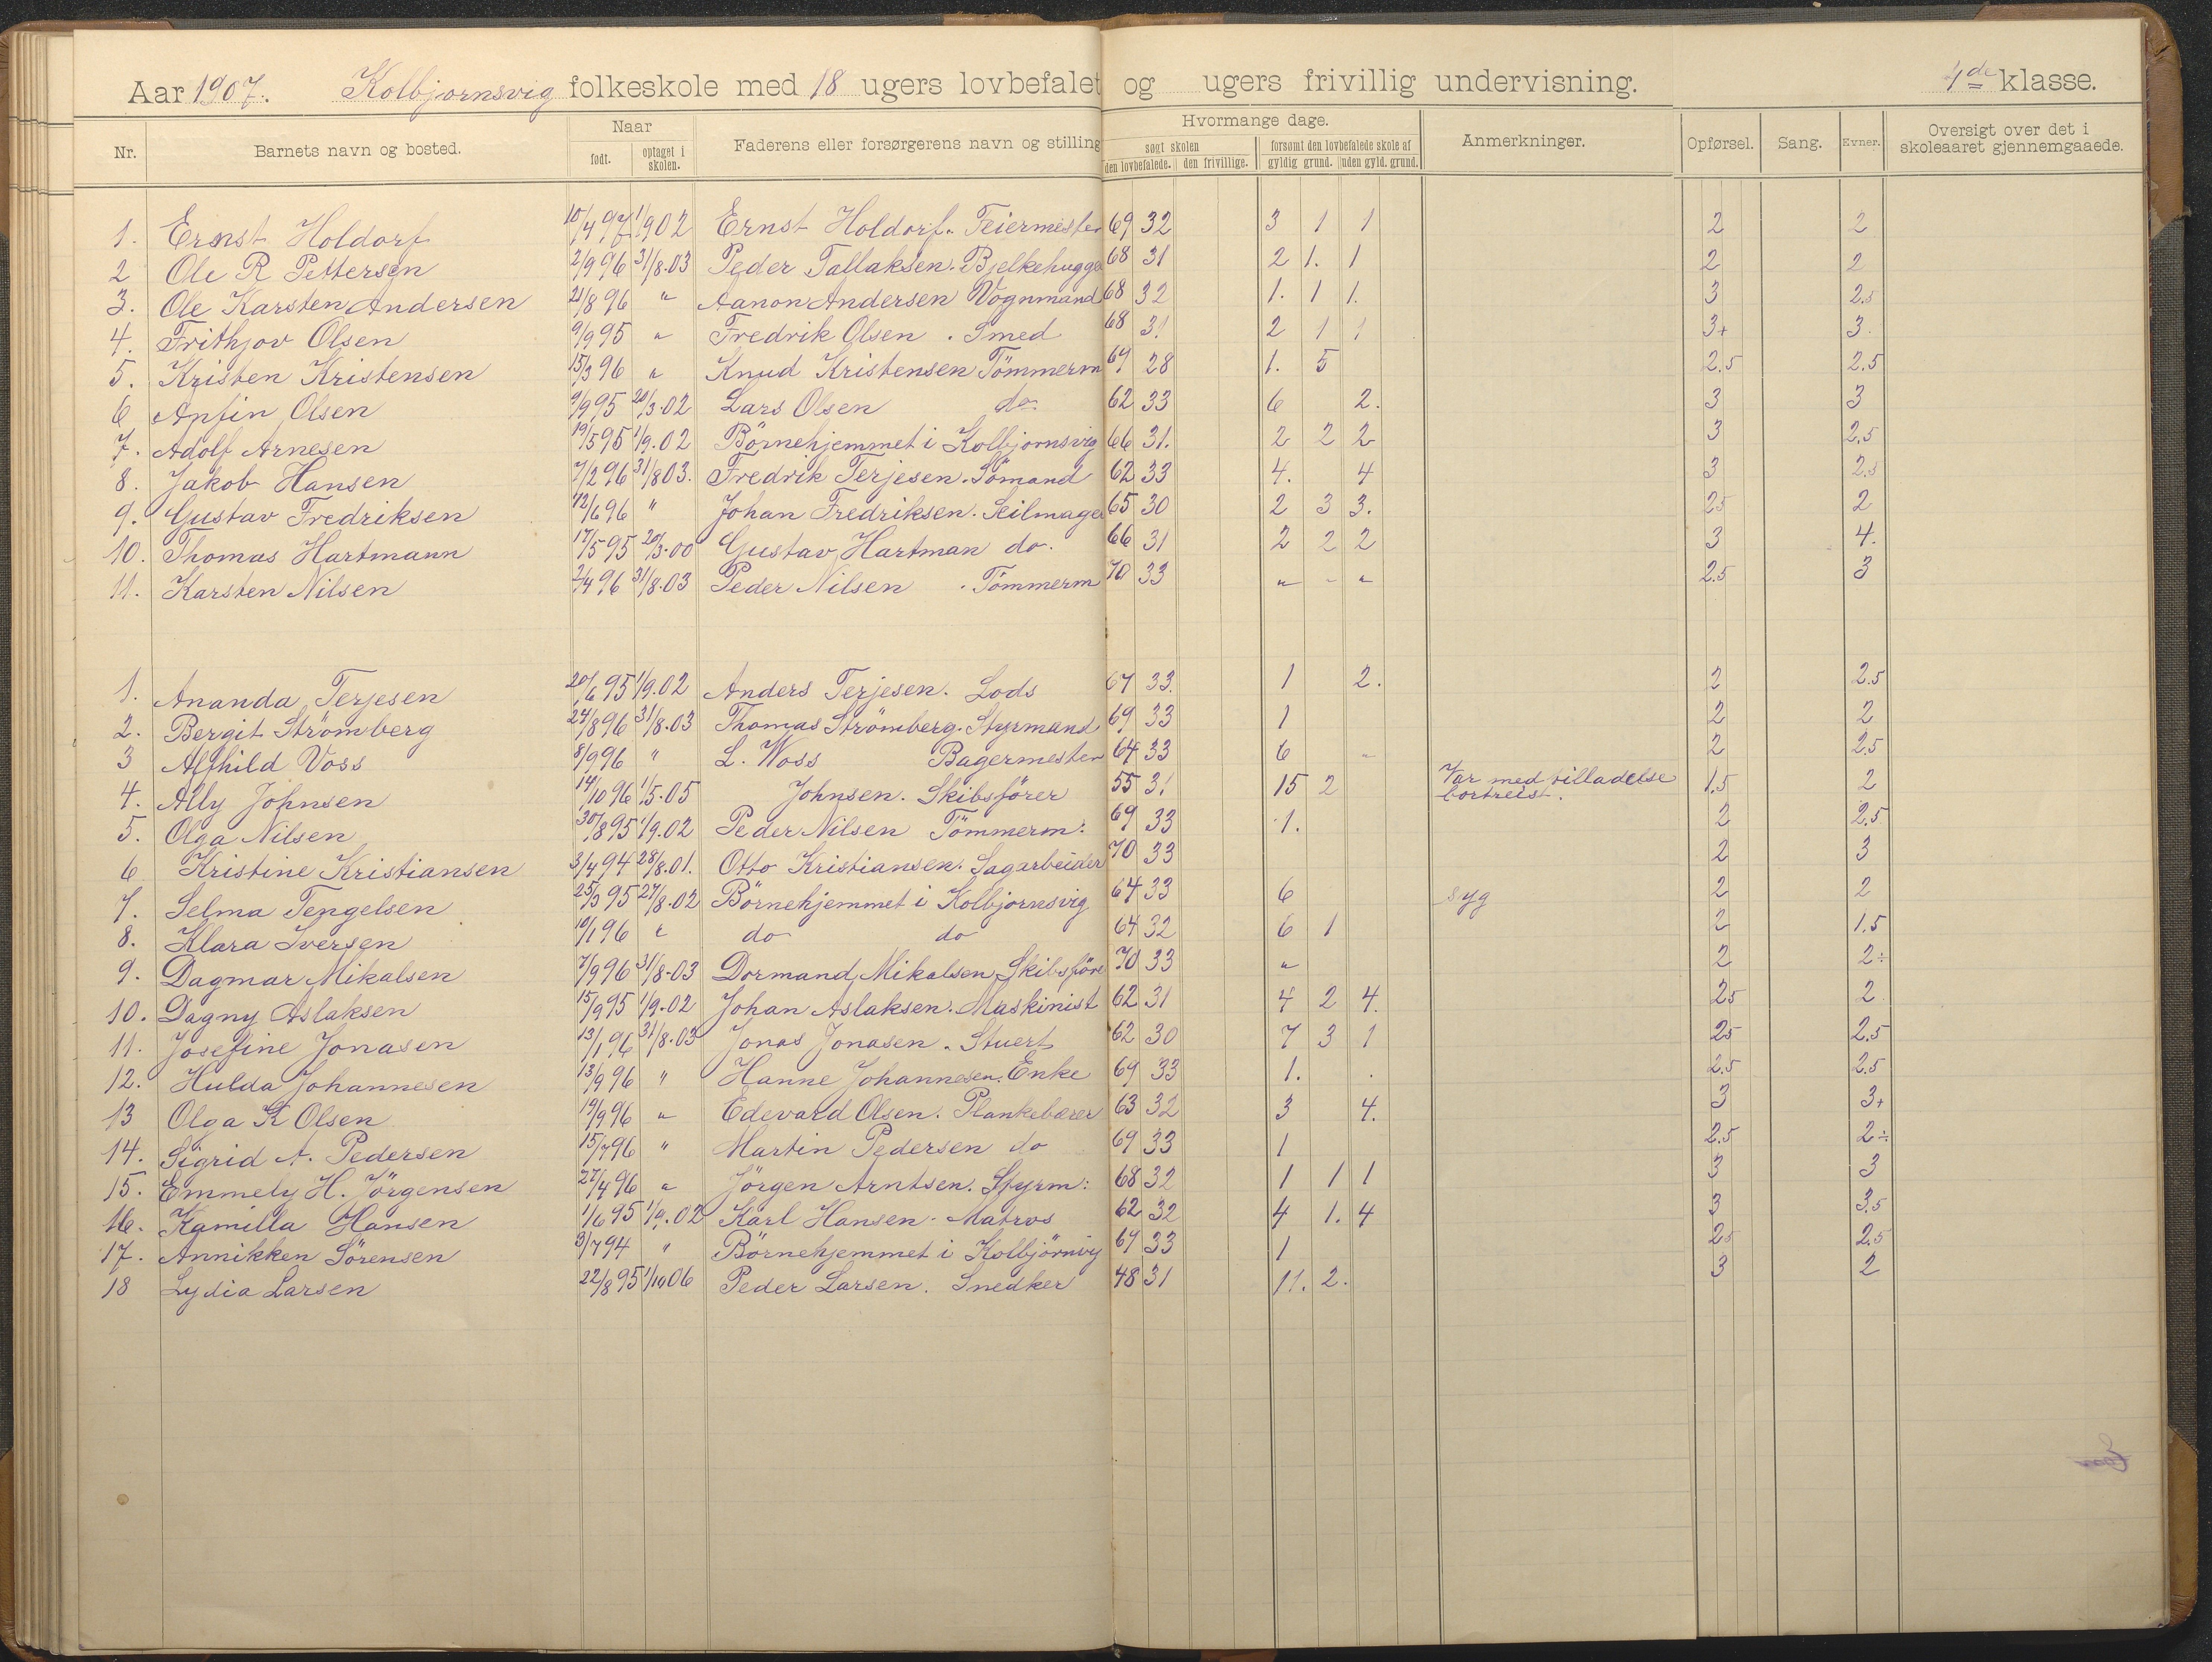 Aar 1907. Kolbjornsvig folkeskole med 18 ugers lovbefalet og ugers frivillig undervisning. 4de klasse.
Nr. Barnets navn og bosted. Naar født. optaget i skolen. Faderens eller forsørgerens navn og stilling Hvormange dage. søgt skolen den lovbefalede. den frivillige. forsømt den lovbefalede skole af gyldig grund. uden gyld. grund. Anmerkninger. Opførsel. Sang. Evner. Oversigt over det i skoleaaret gjennemgaaede.
1. Ernst Holdorf 10/4 97 1/902 Ernst Holdorf. Feiermester 69 32 3 1 1 2 2
2 Ole R Pettersen 2/9 96 31/8.03 Peder Tallaksen. Bjelkehugge 68 31 2 1. 1 2 2
3. Ole Karsten Andersen 21/8 96 " Aanon Andersen Vognmand 68 32 1. 1 1. 3 2.5
4. Frithjov Olsen 9/9 95 " Fredrik Olsen . Smed 68 31 2 1 1 3+ 3.
5. Kristen Kristensen 15/3 96 " Knud Kristensen Tömmerm 69 28 1. 5 2.5 2.5
6 Anfin Olsen 9/9 95 20/3.02 Lars Olsen do 62 33 6 2. 3 3
7. Adolf Arnesen 19/5 95 1/9.02 Börnehjemmet i Kolbjornsvig 66 31. 2 2 2 3 2.5
8. Jakob Hansen 7/2 96 31/8 03. Fredrik Terjesen. Sömand 62 33 4. 4 3 2.5
9. Gustav Fredriksen 12/6 96 " Johan Fredriksen. Seilmage 65 30 2 3 3. 25 2
10. Thomas Hartmann 17/5 95 20/3.00 Gustav Hartman do. 66 31 2 2 2 3 4.
11. Karsten Nilsen 2/4 96 31/8.03 Peder Nilsen . Tömmerm 70 33 " - " 2.5 3
1. Ananda Terjesen 20/6 95 1/9.02 Anders Terjesen. Lods 67 33. 1 2. 2 2.5
2. Bergit Strömberg 24/8 96 31/8.03 Thomas Strömberg. Styrmand 69 33 1 2 2
3 Alfhild Voss 8/9 96 " L. Woss Bagermester 64 33 6 - 2 2.5
4. Ally Johnsen 14/10 96 1/5.05 Johnsen. Skibsförer 55 31 15 2 Var med tilladelse bortreist. 1.5 2
5. Olga Nilsen 30/8 95 1/9.02 Peder Nilsen Tömmerm: 69 33 1. 2 2.5
6 Kristine Kristiansen 3/4 94 28/8.01. Otto Kristiansen. Sagarbeider 70 33 2 3
7. Selma Tengelsen 25/3 95 27/8.02 Börnehjemmet i Kolbjornsvig 64 33 6 syg 2 2
8. Klara Iversen 10/1 96 " do do 64 32 6 1 2 1.5
9. Dagmar Mikalsen 7/9 96 31/8-03 Dormand Mikalsen Skibsföre 70 33 " 2 2÷
10. Dagny Aslaksen 15/9 95 1/9.02 Johan Aslaksen. Maskinist 62 31 4 2 4. 25 2
11. Josefine Jonasen 13/1 96 31/8.03 Jonas Jonasen. Stuert 62 30 7 3 1 25 2.5
12. Hulda Johannesen 13/9 96 " Hanne Johannesen. Enke 69 33 1. . 2.5 2.5
13 Olga K Olsen 19/9 96 " Edevard Olsen. Plankebærer 63 32 3 4. 3 3+
14. Sigrid A. Pedersen 15/7 96 " Martin Pedersen do 69 33 1 2.5 2÷
15. Emmely H. Jörgensen 27/4 96 " Jörgen Arntsen. Styrm: 68 32 1 1 1 3 3
16. Kamilla Hansen 1/6 95 1/9.02 Karl Hansen. Matros 62 32 4 1. 4 3 3.5
17. Annikken Sörensen 3/7 94 " Börnehjemmet i Kolbjörnvig 69 33 1 25 2.5
18 Lydia Larsen 22/8 95 1/10 06 Peder Larsen. Snedker 48 31 11. 2. 3 2